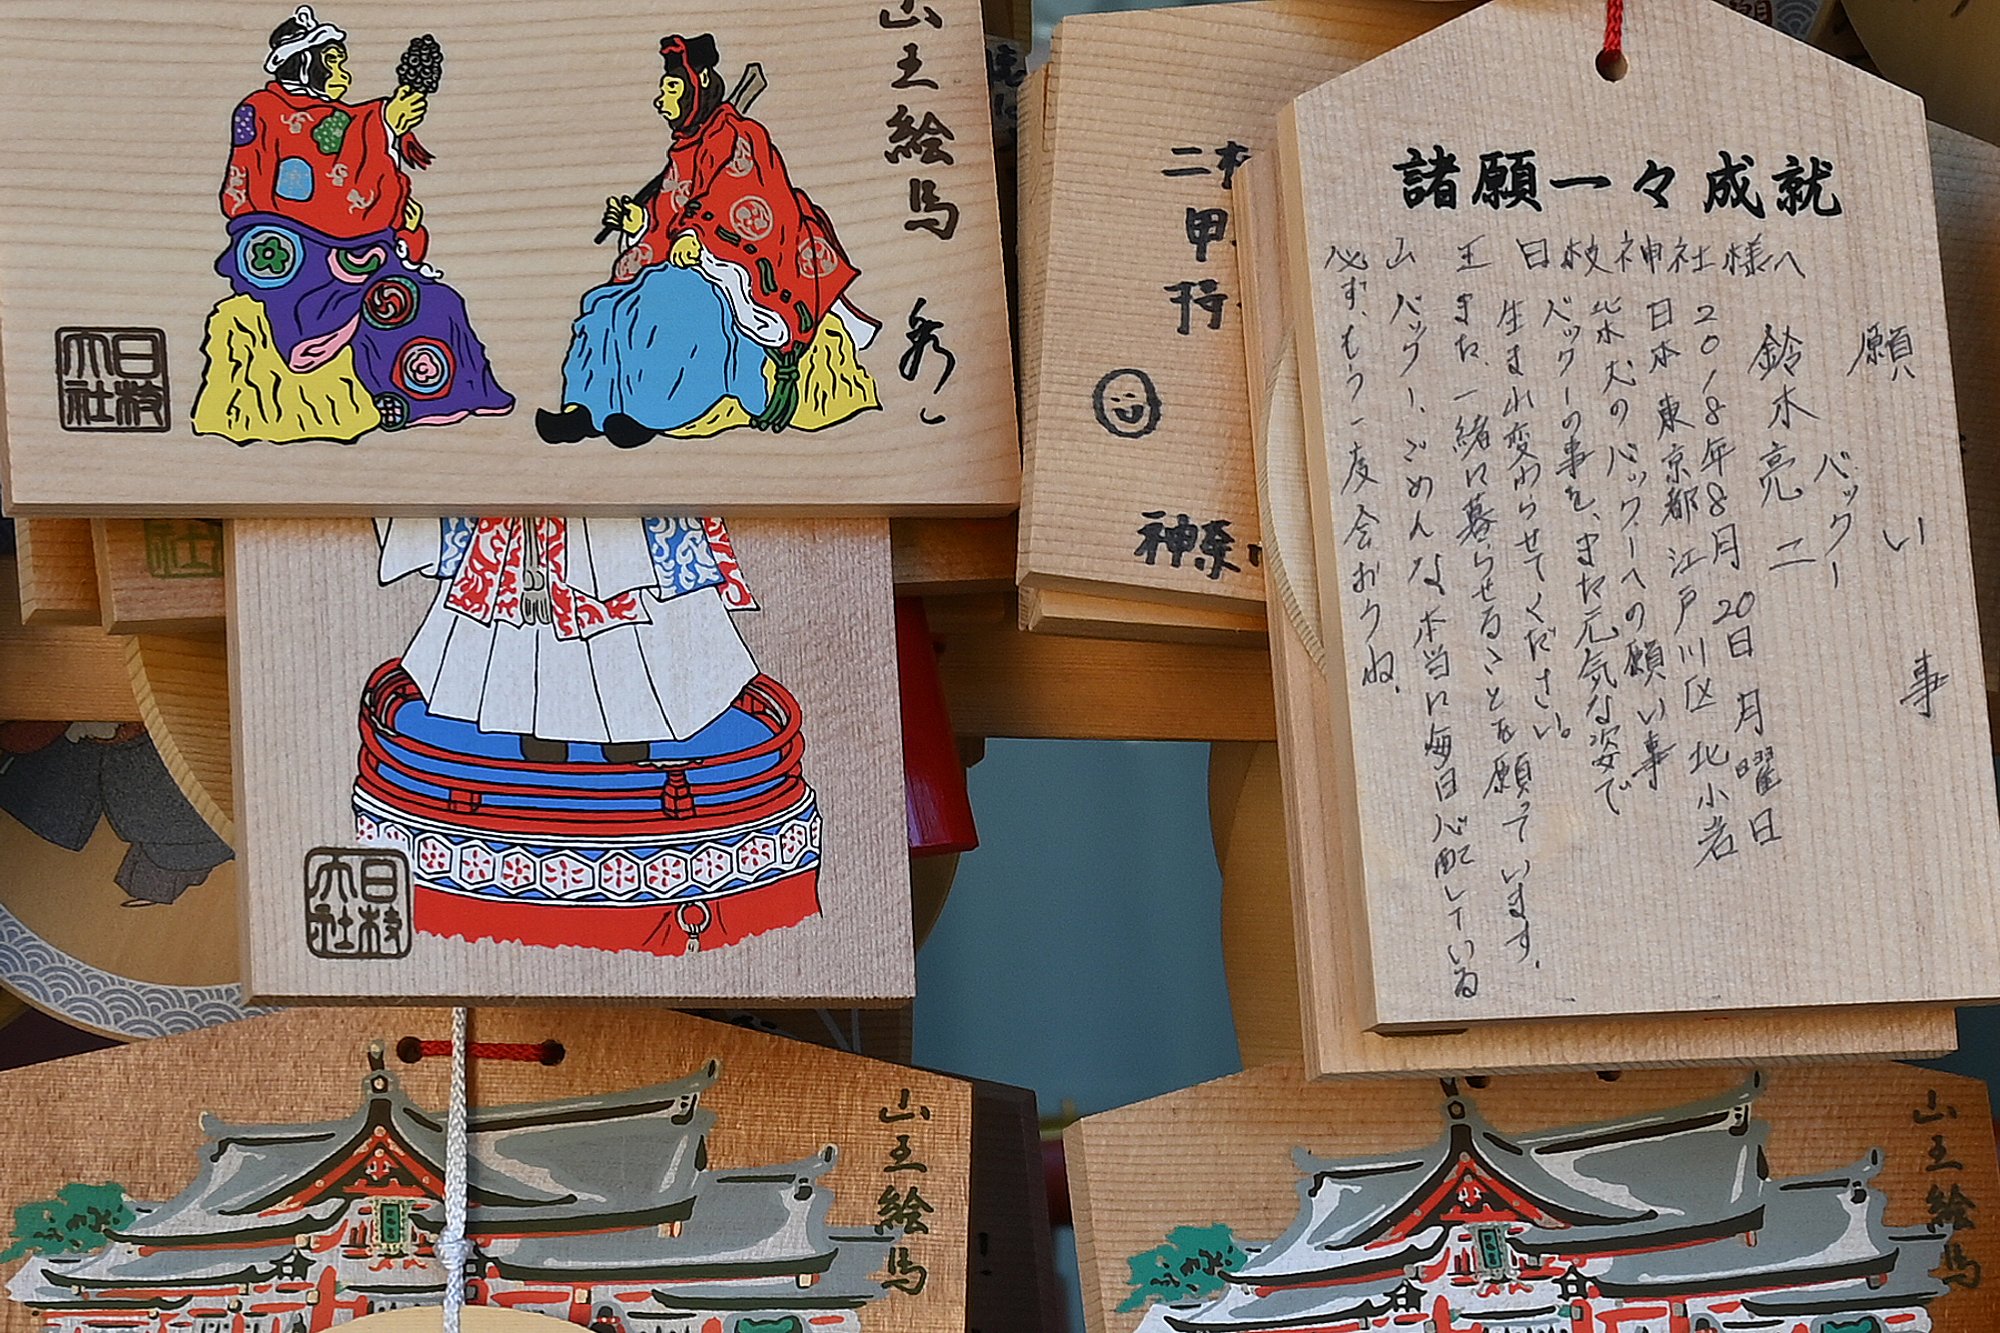 山王絵馬
日枝
大社
二
甲
神奈
諸願一々成就
願い事
バックー
鈴木亮二
2018年8月20日月曜日
日本東京都江戸川区北小岩
柴犬のバックーへの願い事
バックーの事を、また元気な姿で
生まれ変わらせてください。
また、一緒に暮らせることを願っています。
バックー、ごめんな本当に毎日心配している
必ず、もう一度会おうね。
山王日枝神社様へ
日枝
大社
山王絵馬
山王絵馬